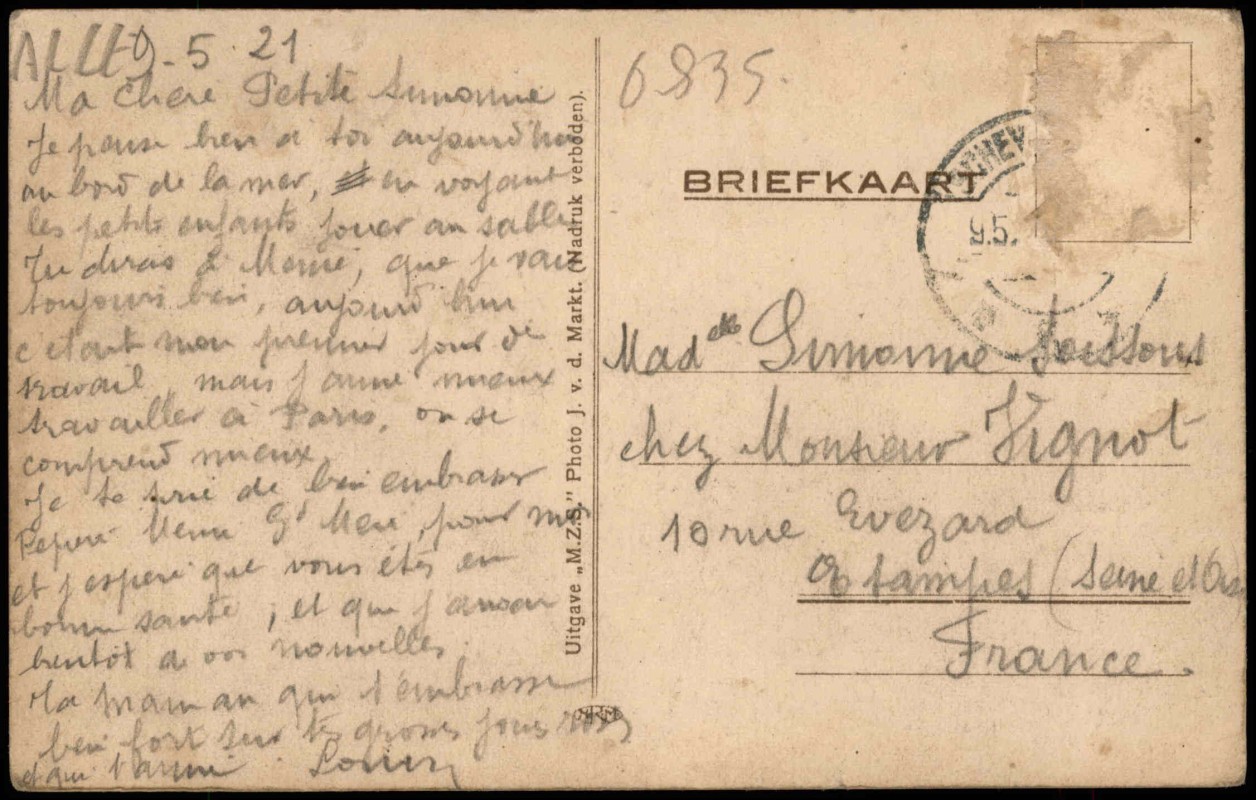 9-5-21
Ma chère Petite Simonne
Je pense bien a toi aujourd'hui
au bord de la mer, en voyant
les petits enfants jouer au sable
Tu diras à Mémé, que je vais
toujours bien, aujourd'hui
c'etait mon premier jour de
travail, mais j'aime mieux
travailler à Paris, on se
comprend mieux
Je te prie de bien embrasser
Peperé Meme Gd Mere, pour moi
et j'espere que vous étés en
bonne santé, et que j'aurai
bientôt de vos nouvelles.
Ta maman qui t'embrasse
bien fort sur tes grosses joues roses
et qui t'aime
Uitgave „M.Z.S.” Photo J. v. d. Markt. (Nadruk verboden).
6835.
BRIEFKAART
9.5.
Madelle Simonne Soissons
chez Monsieur Vignot
10 rue Evezard
Etampes (Seine et Oise
France.